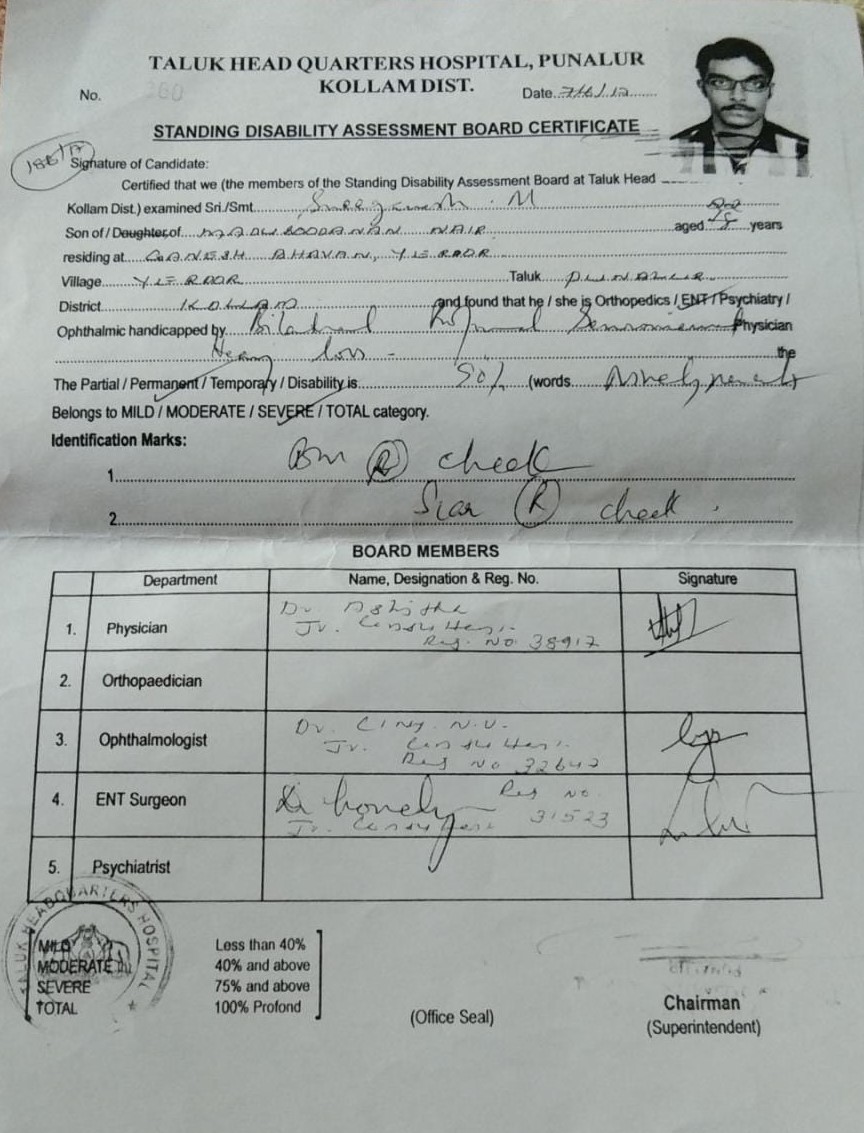 TALUK HEAD QUARTERS HOSPITAL, PUNALUR
KOLLAM DIST.
No. 360
Date
STANDING DISABILITY ASSESSMENT BOARD CERTIFICATE
Signature of Candidate:
Certified that we (the members of the Standing Disability Assessment Board at Taluk Head
Kollam Dist.) examined Sri./Smt. M
Son of / Daughter of NAIR aged years
residing at GANESH BHAVAN, YEROOR
Village YEROOR Taluk PUNALUR
District KOLLAM and found that he / she is Orthopedics / ENT / Psychiatry /
Ophthalmic handicapped by Bilateral Physician
loss the
The Partial / Permanent / Temporary / Disability is (words
Belongs to MILD / MODERATE / SEVERE / TOTAL category.
Identification Marks:
1. (R) cheek
2. Scar (R) cheek.
BOARD MEMBERS
Department Name, Designation & Reg. No. Signature
1. Physician Dr
Jr. Consultant
Reg. No. 38917
2. Orthopaedician
3. Ophthalmologist Dr. CINY. N.V.
Jr. Consultant
Reg No 32642
4. ENT Surgeon Dr Reg No.
Jr. Consultant 31523
5. Psychiatrist
TALUK HEADQUARTERS HOSPITAL
MILD Less than 40%
MODERATE 40% and above
SEVERE 75% and above
TOTAL 100% Profond
(Office Seal)
Chairman
(Superintendent)